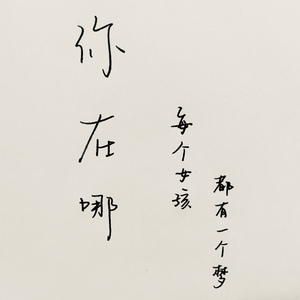 你在哪
每个女孩
都有一个梦